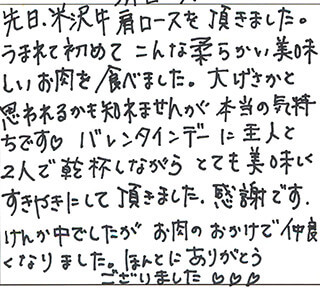 先日、米沢牛肩ロースを頂きました。
うまれて初めてこんな柔らかい美味
しいお肉を食べました。大げさかと
思われるかも知れませんが本当の気持
ちです♡ バレンタインデーに主人と
2人で乾杯しながらとても美味しく
すきやきにして頂きました。感謝です。
けんか中でしたがお肉のおかげで仲良
くなりました。ほんとにありがとう
ございました♡♡♡